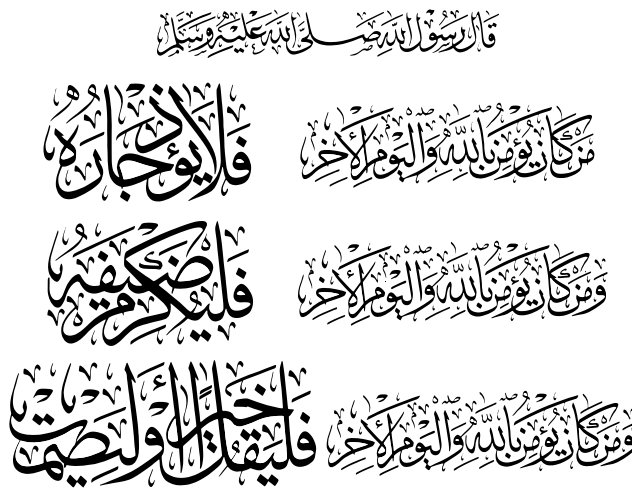 قال رسول الله صلى الله عليه وسلم
من كان يؤمن بالله واليوم الأخر فلا يؤذ جاره
ومن كان يؤمن بالله واليوم الأخر فليكرم ضيفه
ومن كان يؤمن بالله واليوم الأخر فليقل خيرا أو ليصمت